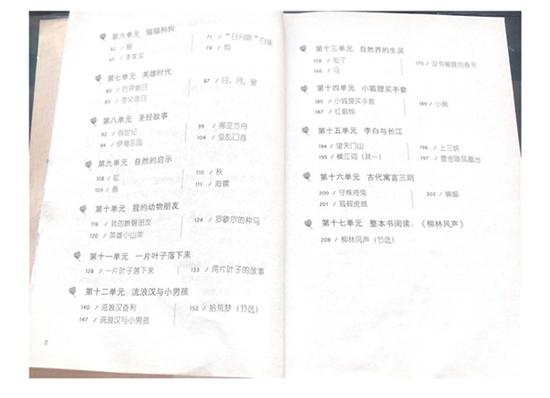 第六单元 猫猫狗狗
60 / 猫
65 / 李家宝
71 / "日月眼"白雪
74 / 狗
第七单元 英雄时代
80 / 后羿射日
83 / 夸父逐日
87 / 日、月、星
第八单元 圣经故事
92 / 创世纪
94 / 伊甸乐园
99 / 挪亚方舟
104 / 变乱口音
第九单元 自然的启示
108 / 虹
109 / 春
110 / 秋
111 / 海懊
第十单元 我的动物朋友
116 / 我的数熙朋友
120 / 英雄小山羊
124 / 罗歇尔的种马
第十一单元 一片叶子落下来
128 / 一片叶子落下来
133 / 两片叶子的故事
第十二单元 流浪汉与小男孩
140 / 流浪汉查利
147 / 流浪汉与小男孩
152 / 拾荒梦（节选）
2
第十三单元 自然界的生灵
158 / 知了
165 / 马
170 / 没有蜜蜂的春天
第十四单元 小狐狸买手套
180 / 小狐狸买手套
187 / 红蜡烛
189 / 小熊
第十五单元 李白与长江
194 / 望天门山
195 / 横江词（其一）
196 / 上三峡
197 / 登金陵凤凰台
第十六单元 古代寓言三则
200 / 守株待兔
201 / 狐假虎威
202 / 蝙蝠
第十七单元 整本书阅读：《柳林风声》
208 / 柳林风声（节选）